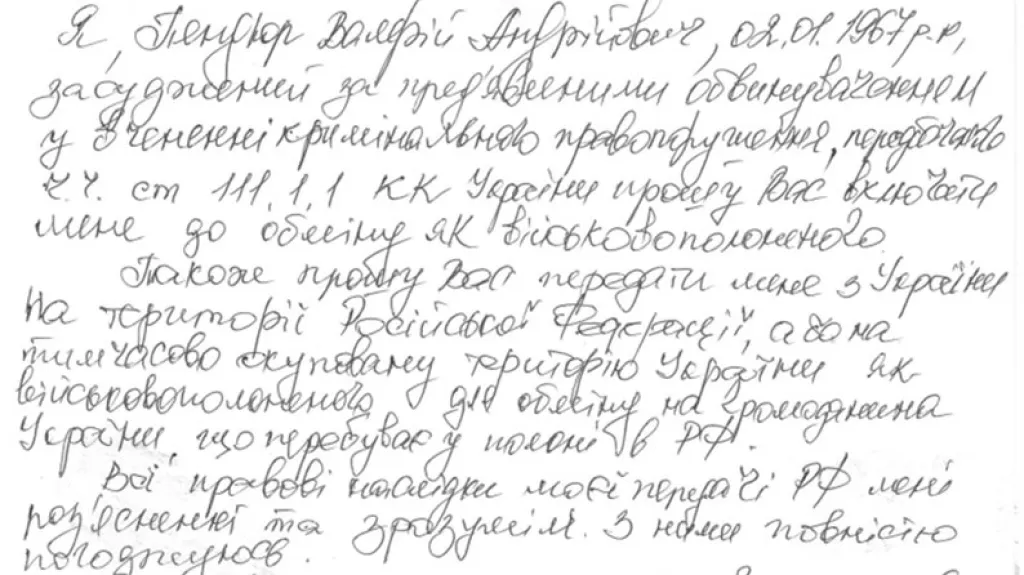 Я, Пендюр Валерій Андрійович, 02.01.1967 р.н,
засуджений за пред'явленими обвинуваченнем
у вчененні кримінального правопорушення, передбаченого
ч. ч. ст 111.1.1 КК України прошу Вас включити
мене до обміну як військовополоненого.
Також прошу Вас передати мене з України
на територіі Російської Федерації, або на
тимчасово окуповану територію України як
військовополоненого для обміну на громадянина
України, що перебуває у полоні в РФ.
Всі правові наслідки моєї передачі РФ мені
роз'ясненні та зрозумілі. З ними повністю
погоджуюсь.